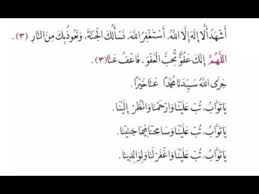 أَشْهَدُ أَلَّا إِلَهَ إِلَّا اللهُ، أَسْتَغْفِرُ اللهَ، نَسْأَلُكَ الْجَنَّةَ، وَنَعُوذُ بِكَ مِنَ النَّارِ (٣).
اللَّهُمَّ إِنَّكَ عَفُوٌّ تُحِبُّ الْعَفْوَ، فَاعْفُ عَنَّا (٣)
جَزَى اللهُ سَيِّدَنَا مُحَمَّدًا عَنَّا خَيْرًا.
يَا تَوَّابُ، تُبْ عَلَيْنَا وَارْحَمْنَا وَانْظُرْ إِلَيْنَا.
يَا تَوَّابُ، تُبْ عَلَيْنَا وَسَامِحْنَا فِيمَا جَنَيْنَا.
يَا تَوَّابُ، تُبْ عَلَيْنَا وَاغْفِرْ لَنَا وَلِوَالِدِينَا.